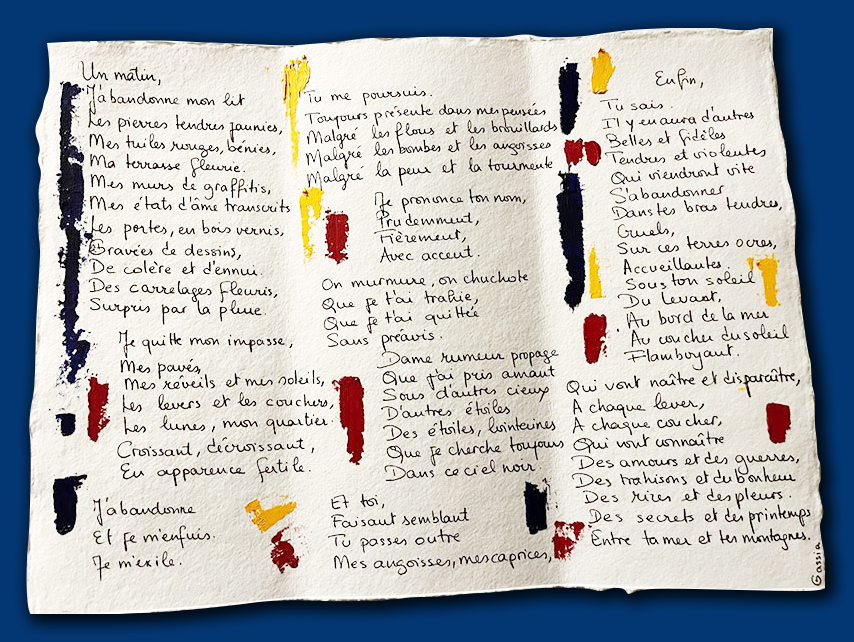 Un matin,
J'abandonne mon lit
Les pierres tendres jaunies,
Mes tuiles rouges, bénies,
Ma terrasse fleurie.
Mes murs de graffitis,
Mes états d'âme transcrits
Les portes, en bois vernis,
Gravées de dessins,
De colère et d'ennui.
Des carrelages fleuris,
Surpris par la pluie.
Je quitte mon impasse,
Mes pavés,
Mes réveils et mes soleils,
Les levers et les couchers,
Les lunes, mon quartier.
Croissant, décroissant,
En apparence fertile.
J'abandonne
Et je m'enfuis.
Je m'exile.
Tu me poursuis.
Toujours présente dans mes pensées
Malgré les flous et les brouillards
Malgré les bombes et les angoisses
Malgré la peur et la tourmente
Je prononce ton nom,
Prudemment,
Fièrement,
Avec accent.
On murmure, on chuchote
Que je t'ai trahie,
Que je t'ai quittée
Sans préavis.
Dame rumeur propage
Que j'ai pris amant
Sous d'autres cieux
D'autres étoiles
Des étoiles, lointaines
Que je cherche toujours
Dans ce ciel noir
Et toi,
Faisant semblant
Tu passes outre
Mes angoisses, mes caprices,
Enfin,
Tu sais.
Il y en aura d'autres
Belles et fidèles
Tendres et violentes
Qui viendront vite
S'abandonner
Dans tes bras tendres,
Cruels,
Sur ces terres ocres,
Accueillantes.
Sous ton soleil
Du Levant,
Au bord de la mer
Au coucher du soleil
Flamboyant.
Qui vont naître et disparaître,
A chaque lever,
A chaque coucher,
Qui vont connaître
Des amours et des guerres,
Des trahisons et du bonheur
Des rires et des pleurs.
Des secrets et des printemps
Entre ta mer et tes montagnes.
Gassia